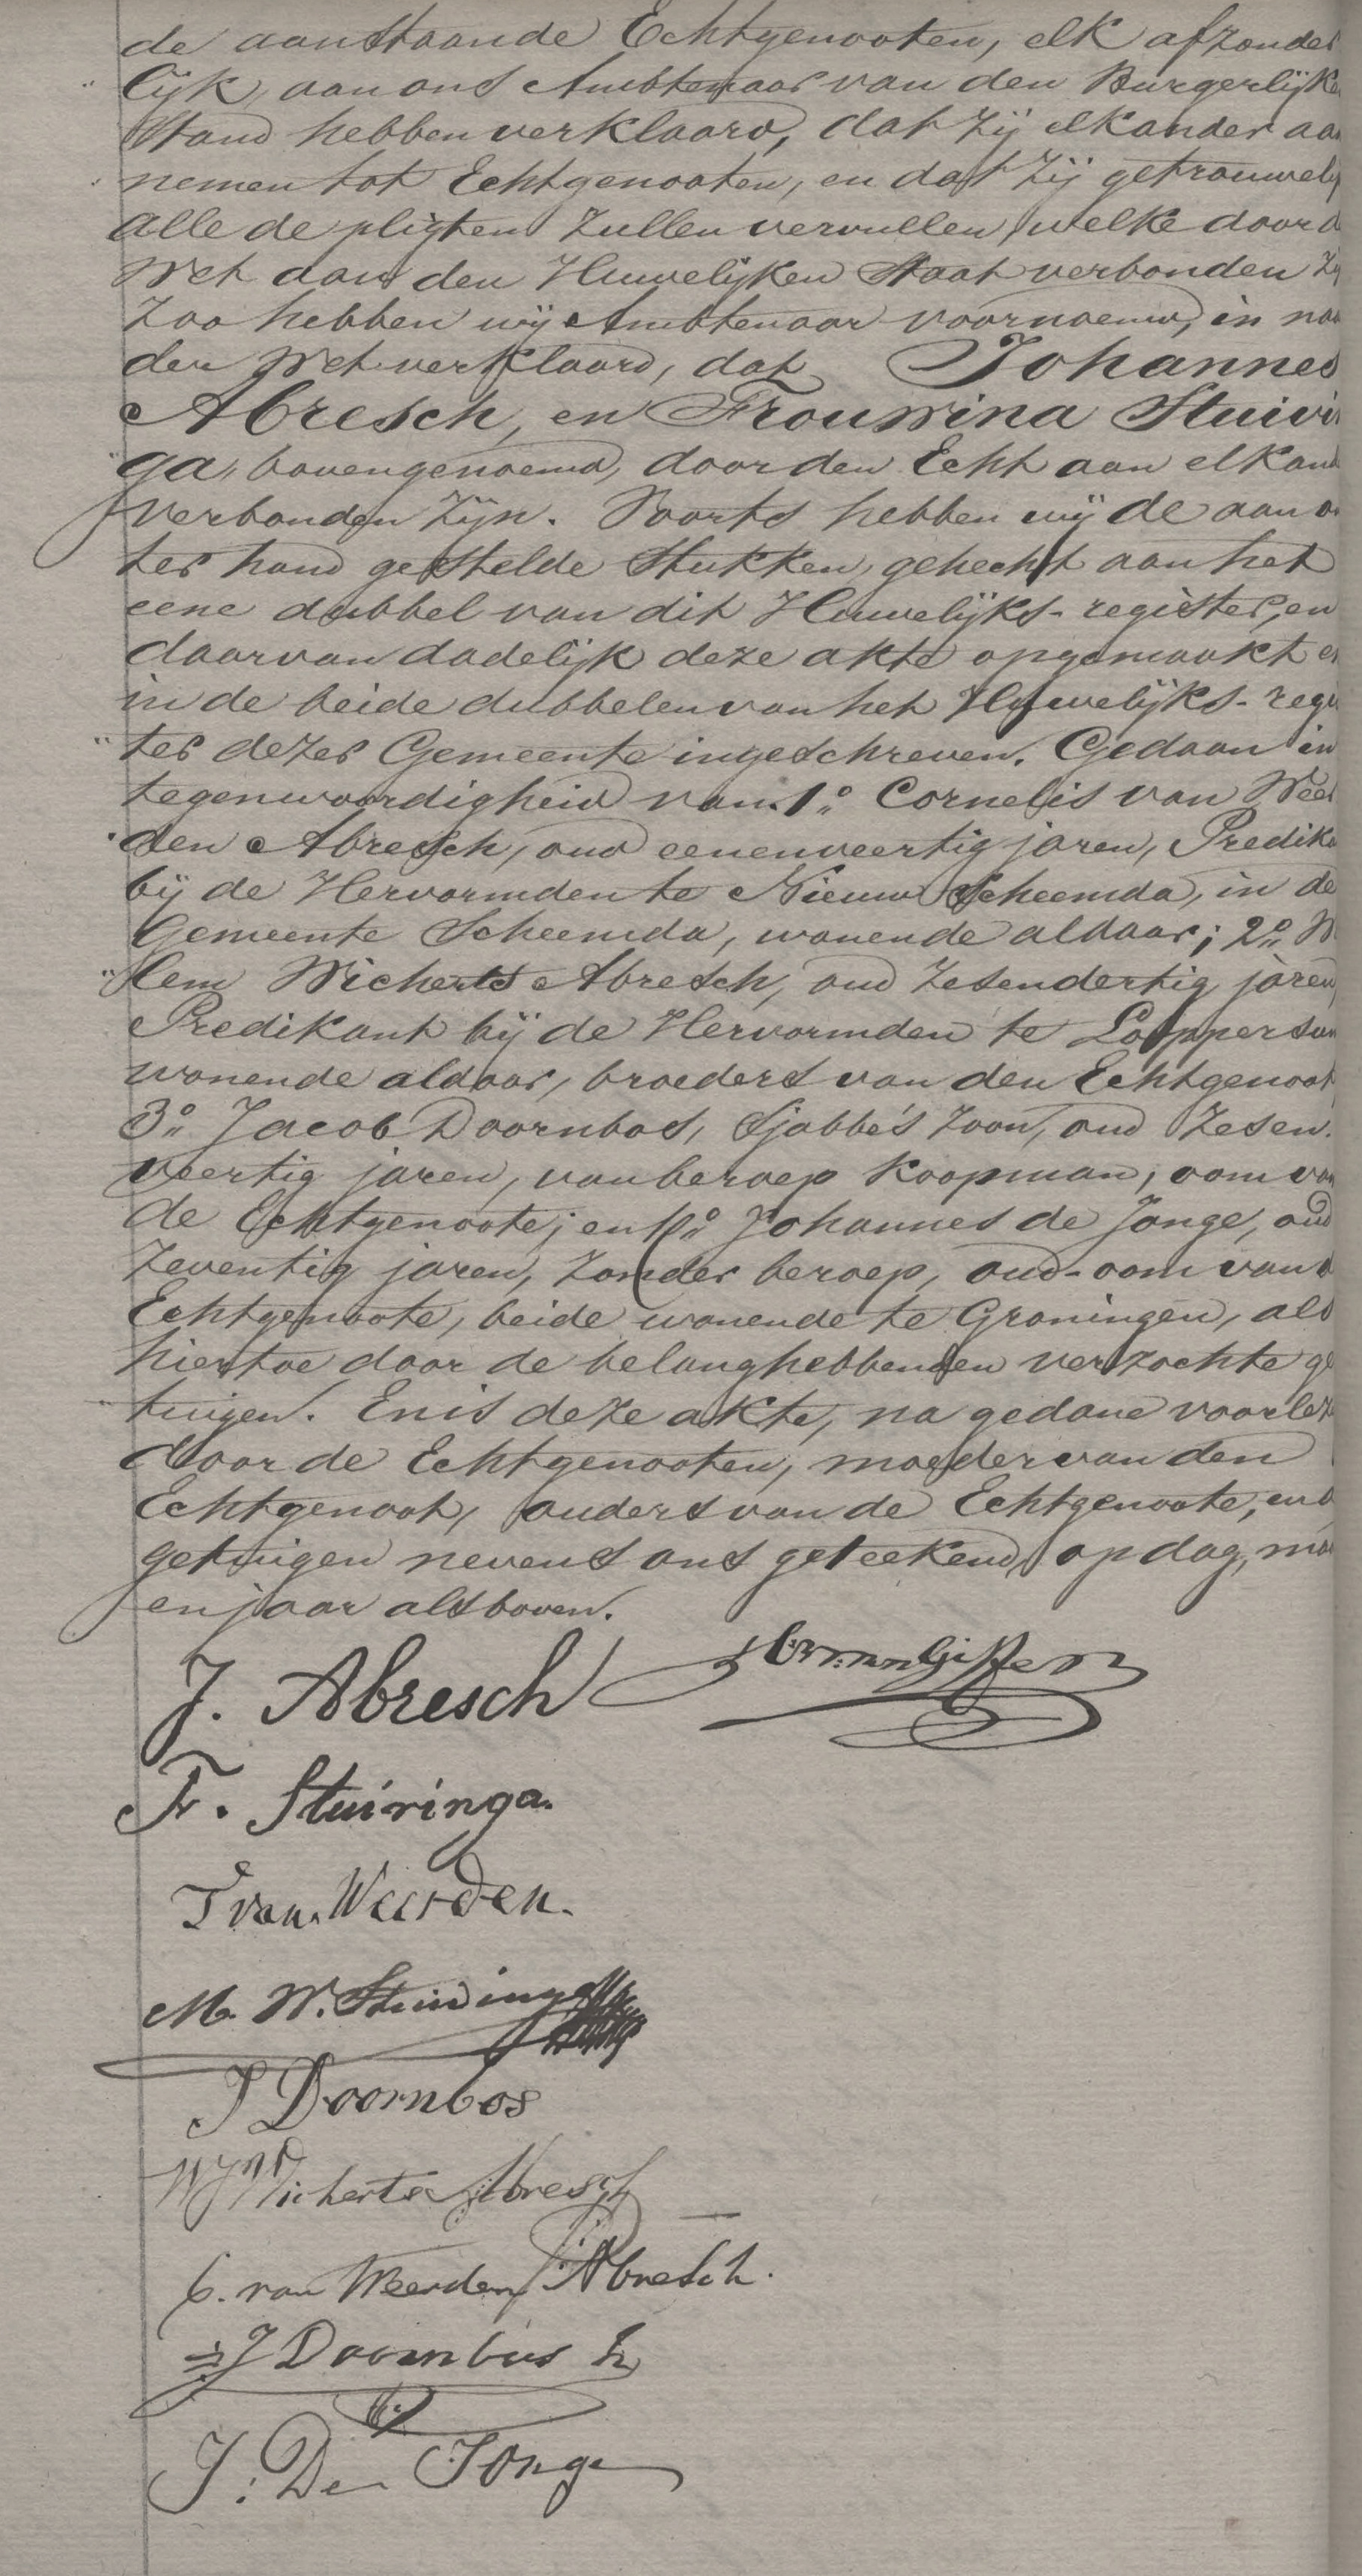 de aanstaande Echtgenooten, elk afzonder
lijk, aan ons Ambtenaar van den Burgerlijke
Stand hebben verklaard, dat zij elkander aa
nemen tot Echtgenooten, en dat zij getrouwelij
alle de pligten zullen vervullen, welke door d
Wet aan den Huwelijken Staat verbonden zij
Zoo hebben wij Ambtenaar voornoemd, in naa
der Wet verklaard, dat Johannes
Abresch, en Frouwina Stuivi
ga, bovengenoemd, door den Echt aan elkand
verbonden zijn. Voorts hebben wij de aan on
ter hand gestelde Stukken, gehecht aan het
eene dubbel van dit Huwelijks-register, en
daarvan dadelijk deze akte opgemaakt en
in de beide dubbelen van het Huwelijks-regis
ter dezer Gemeente ingeschreven. Gedaan in
tegenwoordigheid van. 1o. Cornelis van Weer
den Abresch, oud eenenveertig jaren, Predika
bij de Hervormden te Nieuw Scheemda, in de
Gemeente Scheemda, wonende aldaar; 2o. Wi
lem Wicherts Abresch, oud zesendertig jaren,
Predikant bij de Hervormden te Loppersum
wonende aldaar, broeders van den Echtgenoot
3o. Jacob Doornbos, Sjabbe's zoon, oud zesen.
veertig jaren, van beroep koopman, oom van
de Echtgenoote; en 4o. Johannes de Jonge, oud
zeventig jaren, zonder beroep, oud-oom van d
Echtgenoote, beide wonende te Groningen, als
hiertoe door de belanghebbenden verzochte ge
tuigen. En is deze akte, na gedane voorlez
door de Echtgenooten, moeder van den
Echtgenoot, ouders van de Echtgenoote, en d
getuigen nevens ons geteekend, op dag, maa
en jaar als boven.
J. Abresch
F. Stuivinga.
T van Weerden.
M. W. Stuivinga
J Doornbos
Wicherts Abresch
C. van Weerden Abresch.
J Doornbos
J. De Jonge